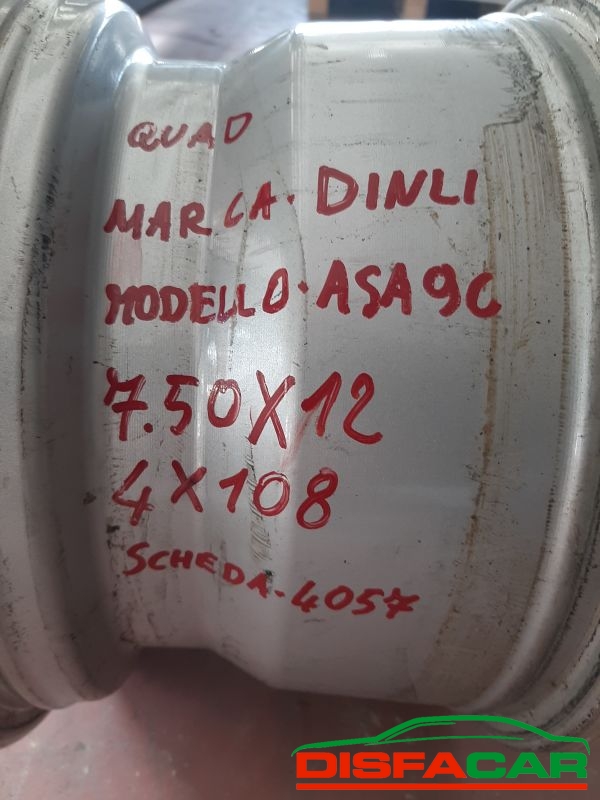 QUAD
MARCA. DINLI
MODELLO. ASA90
7.50X12
4X108
SCHEDA-4057
DISFACAR